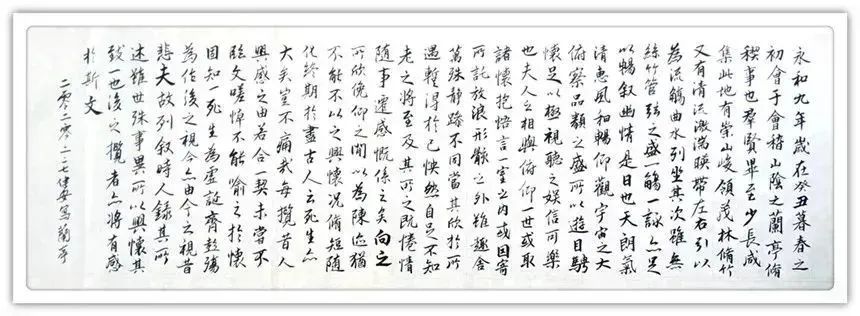 永和九年歲在癸丑暮春之
初會于會稽山陰之蘭亭脩
稧事也群賢畢至少長咸
集此地有崇山峻領茂林脩竹
又有清流激湍暎帶左右引以
為流觴曲水列坐其次雖無
絲竹管弦之盛一觴一詠亦足
以暢敘幽情是日也天朗氣
清惠風和暢仰觀宇宙之大
俯察品類之盛所以遊目騁
懷足以極視聽之娛信可樂
也夫人之相與俯仰一世或取
諸懷抱悟言一室之內或因寄
所託放浪形骸之外雖趣舍
萬殊靜躁不同當其欣於所
遇暫得於己快然自足不知
老之將至及其所之既惓情
隨事遷感慨係之矣向之
所欣俛仰之間以為陳迹猶
不能不以之興懷況脩短隨
化終期於盡古人云死生亦
大矣豈不痛哉每攬昔人
興感之由若合一契未嘗不
臨文嗟悼不能喻之於懷
固知一死生為虛誕齊彭殤
為妄作後之視今亦由今之視昔
悲夫故列敘時人錄其所
述雖世殊事異所以興懷其
致一也後之攬者亦將有感
於斯文
二零二零 寫蘭亭